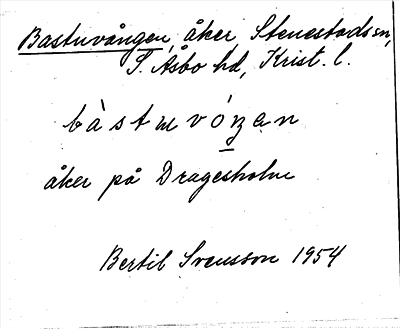 Bastuvången, åker Stenestads sn,
S. Åsbo hd, Krist. l.
bàstuvóŋan
åker på Dragesholm
Bertil Svensson 1954